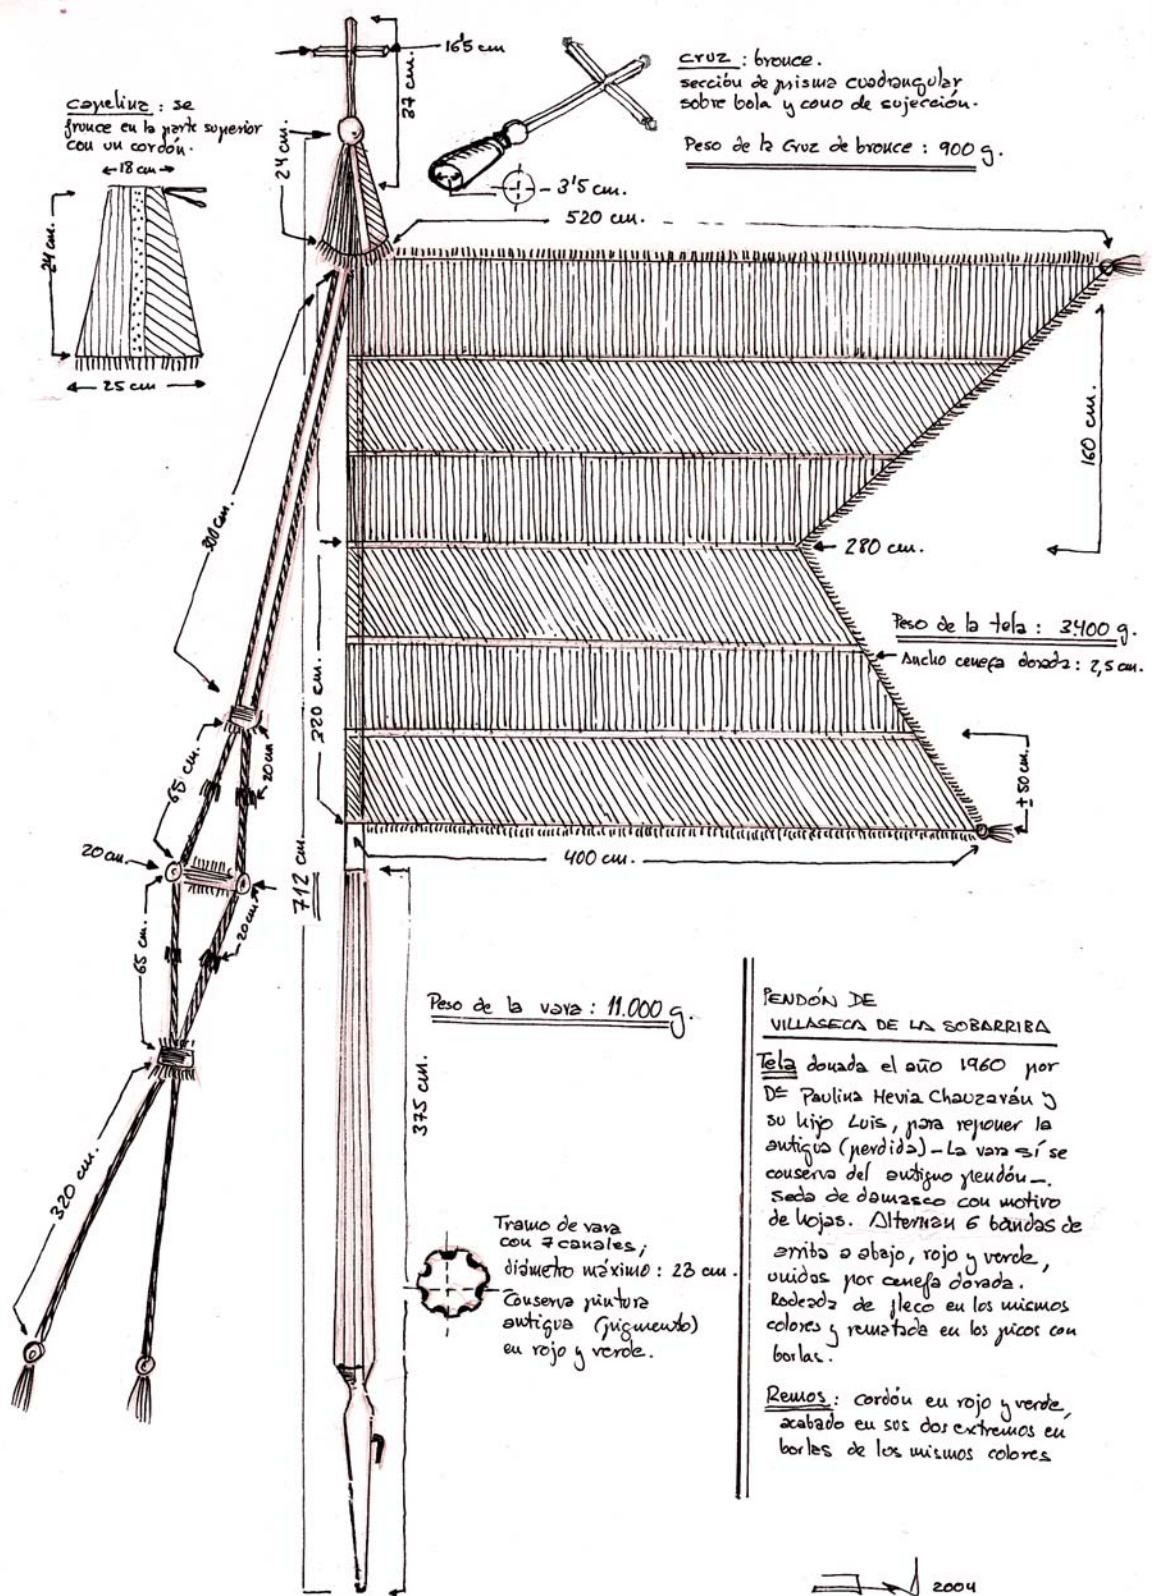 16'5 cm
37 cm.
24 cm.
capelina : se
frunce en la parte superior
con un cordón.
18 cm
24 cm.
25 cm
cruz : bronce.
sección de prisma cuadrangular
sobre bola y cono de sujección.
Peso de la Cruz de bronce : 900 g.
3'5 cm.
520 cm.
160 cm.
300 cm.
280 cm.
Peso de la tela : 3400 g.
Ancho cenefa dorada : 2,5 cm.
320 cm.
± 50 cm.
65 cm.
20 cm
20 cm.
400 cm.
712 cm.
65 cm.
20 cm.
320 cm.
Peso de la vara : 11.000 g.
375 cm.
Tramo de vara
con 7 canales ;
diámetro máximo : 23 cm.
Conserva pintura
antigua (pigmento)
en rojo y verde.
PENDÓN DE
VILLASECA DE LA SOBARRIBA
Tela donada el año 1960 por
Dª Paulina Hevia Chanzaván y
su hijo Luis, para reponer la
antigua (perdida) - La vara sí se
conserva del antiguo pendón -.
Seda de damasco con motivo
de hojas. Alternan 6 bandas de
arriba a abajo, rojo y verde,
unidas por cenefa dorada.
Rodeada de fleco en los mismos
colores y rematada en los picos con
borlas.
Remos : cordón en rojo y verde,
acabado en sus dos extremos en
borlas de los mismos colores
2004